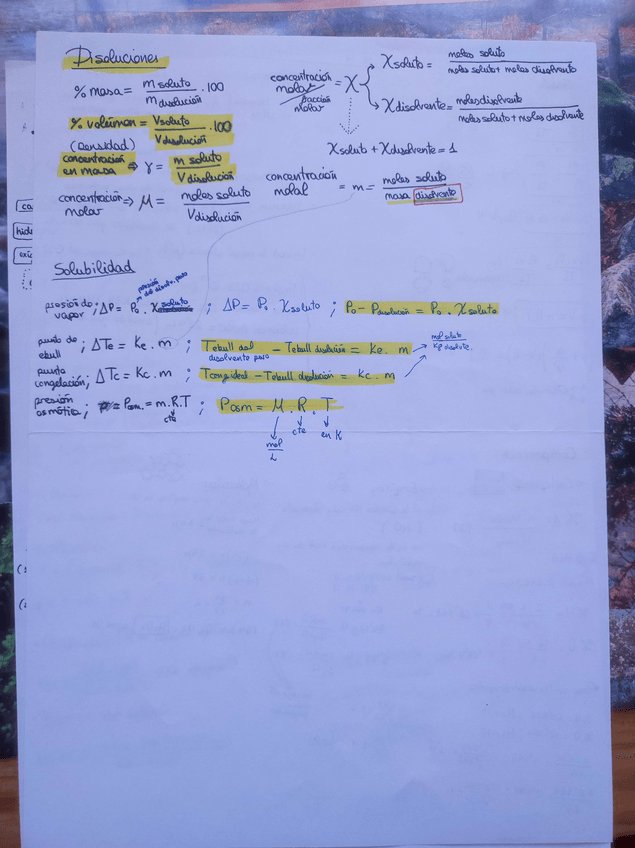 Disoluciones
% masa = m soluto / m disolución . 100
% volúmen = V soluto / V disolución . 100
(densidad)
concentración en masa ⇒ γ = m soluto / V disolución
concentración molar ⇒ M = moles soluto / V disolución
concentración molar / fracción molar = χ
χ soluto = moles soluto / moles soluto + moles disolvente
χ disolvente = moles disolvente / moles soluto + moles disolvente
χ soluto + χ disolvente = 1
concentración molal = m = moles soluto / masa disolvente
Solubilidad
presión del disolv. puro
presión de vapor ; ΔP = P₀ . χ soluto ; ΔP = P₀ . χ soluto ; P₀ - P disolución = P₀ . χ soluto
punto de ebull ; ΔTe = Ke . m ; T ebull del disolvente puro - T ebull disolución = Ke . m
mol soluto / Kg disolvte.
punto congelación ; ΔTc = Kc . m ; T cong ideal - T ebull disolución = Kc . m
presión osmótica ; P osm. = m . R . T ; P osm = M . R . T
cte
mol / L
cte
en K